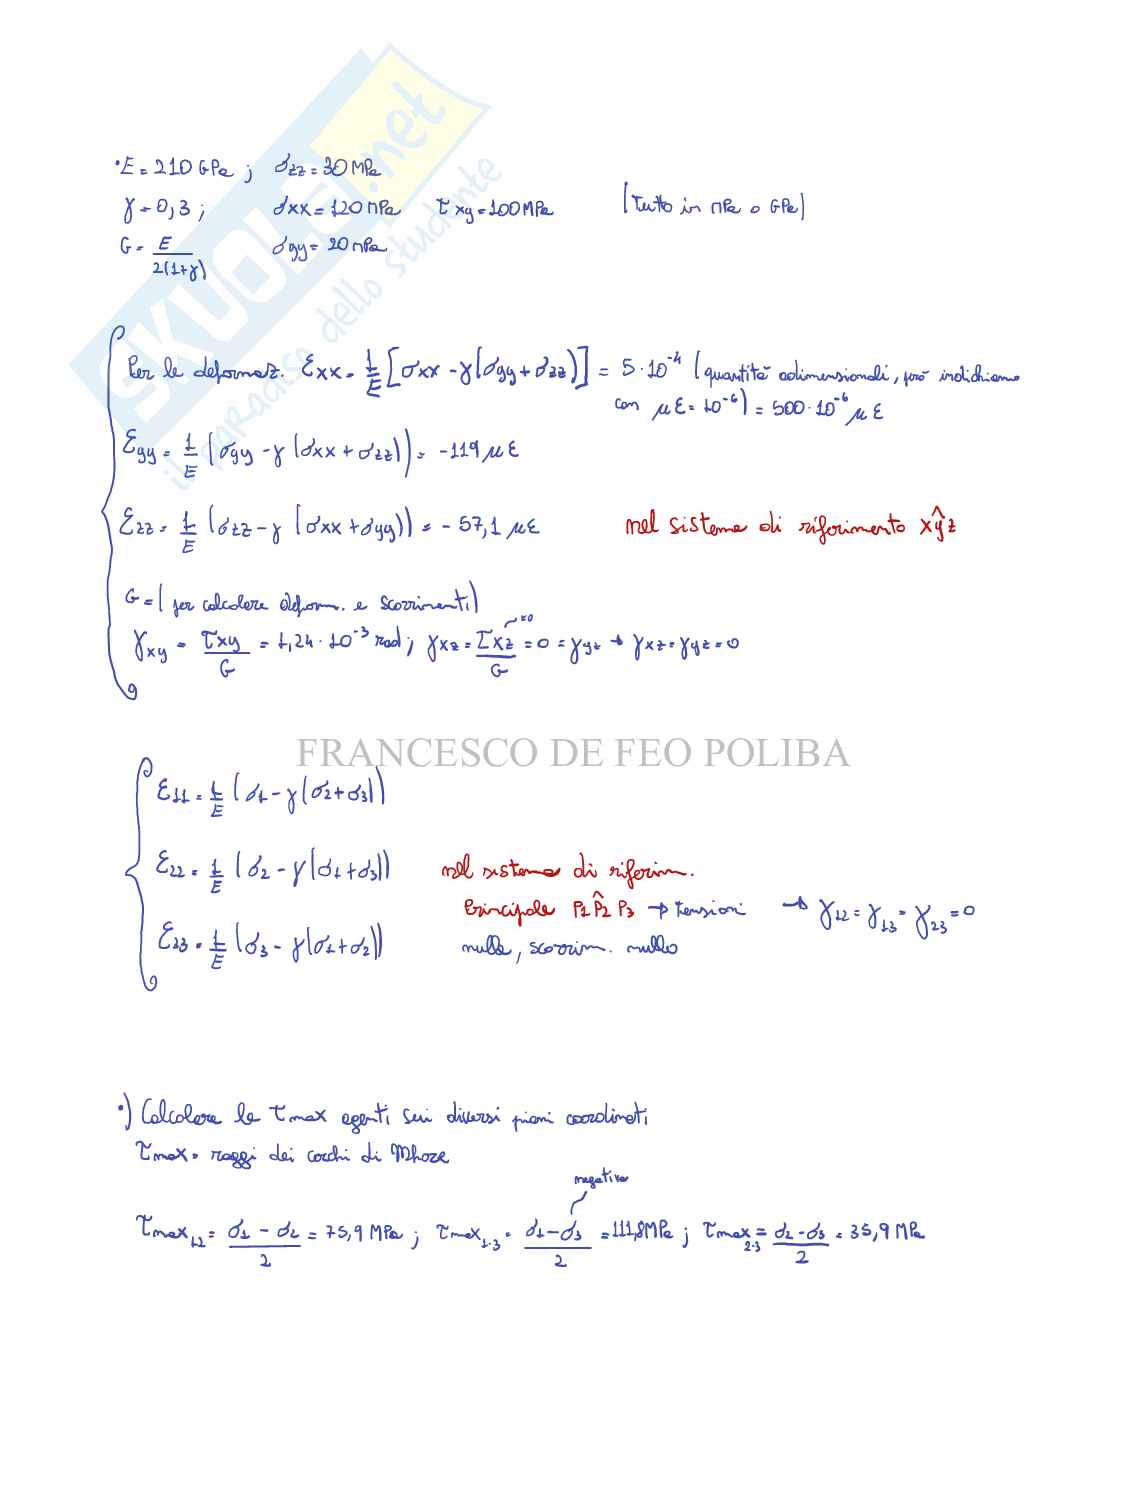 • E = 210 GPa ; σzz = 30 MPa
γ = 0,3 ; σxx = 120 MPa τxy = 100 MPa (Tutto in MPa o GPa)
G = E / 2(1+γ) σyy = 20 MPa
Per le deformaz. Ɛxx = 1/E [σxx - γ(σyy + σzz)] = 5·10⁻⁴ (quantità adimensionali, però indichiamo
con μƐ = 10⁻⁶) = 500·10⁻⁶ μƐ
Ɛyy = 1/E (σyy - γ(σxx + σzz)) = -119 μƐ
Ɛzz = 1/E (σzz - γ(σxx + σyy)) = -57,1 μƐ nel sistema di riferimento xŷz
G = (per calcolare deform. e scorrimenti)
γxy = τxy / G = 1,24·10⁻³ rad ; γxz = τxz / G = 0 = γyz → γxz = γyz = 0
=0
FRANCESCO DE FEO POLIBA
Ɛ11 = 1/E (σ1 - γ(σ2 + σ3))
Ɛ22 = 1/E (σ2 - γ(σ1 + σ3)) nel sistema di riferim.
Principale P1 P̂2 P3 → tensioni → γ12 = γ13 = γ23 = 0
Ɛ23 = 1/E (σ3 - γ(σ1 + σ2)) nulle, scorrim. nullo
•) Calcolare le τmax agenti sui diversi piani coordinati
τmax = raggi dei cerchi di Mhore
negativa
τmax1-2 = σ1 - σ2 / 2 = 75,9 MPa ; τmax1-3 = σ1 - σ3 / 2 = 111,8 MPa ; τmax2-3 = σ2 - σ3 / 2 = 35,9 MPa
SKUOLA.net
il paradiso dello studente